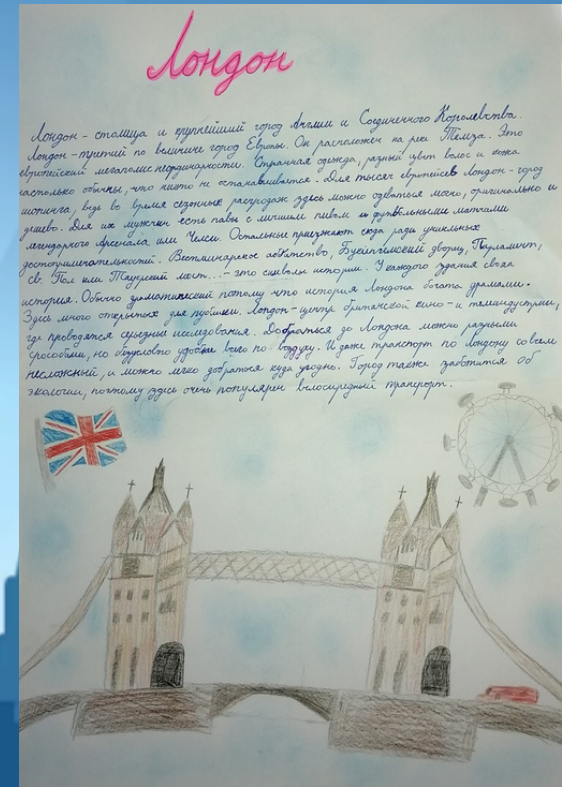 Лондон
Лондон - столица и крупнейший город Англии и Соединенного Королевства.
Лондон - третий по величине город Европы. Он расположен на реке Темза. Это
европейский мегаполис неординарности. Странная одежда, разный цвет волос и кожа
настолько обычны, что никто не останавливается. Для тысяч европейцев Лондон - город
шопинга, ведь во время сезонных распродаж здесь можно одеваться модно, оригинально и
дешево. Для их мужчин есть пабы с лучшим пивом и футбольными матчами
легендарного Арсенала или Челси. Остальные приезжают сюда ради уникальных
достопримечательностей. Вестминарское аббатство, Букингемский дворец, Парламент,
св. Пол или Тауэрский мост... - это символы истории. У каждого здания своя
история. Обычно драматический потому что история Лондона богата драмами.
Здесь много открытых для публики. Лондон - центр британской кино - и телеиндустрии,
где проводятся серьезные исследования. Добраться до Лондона можно разными
способами, но безусловно удобнее всего по воздуху. И даже транспорт по Лондону совсем
несложный, и можно легко добраться куда угодно. Город также заботится об
экологии, поэтому здесь очень популярен велосипедный транспорт.